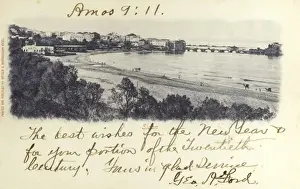 Amos 9:11.
The best wishes for the New Year &
for your portion of the Twentieth
Century, Yours in glad Service
Geo. A. Ford.